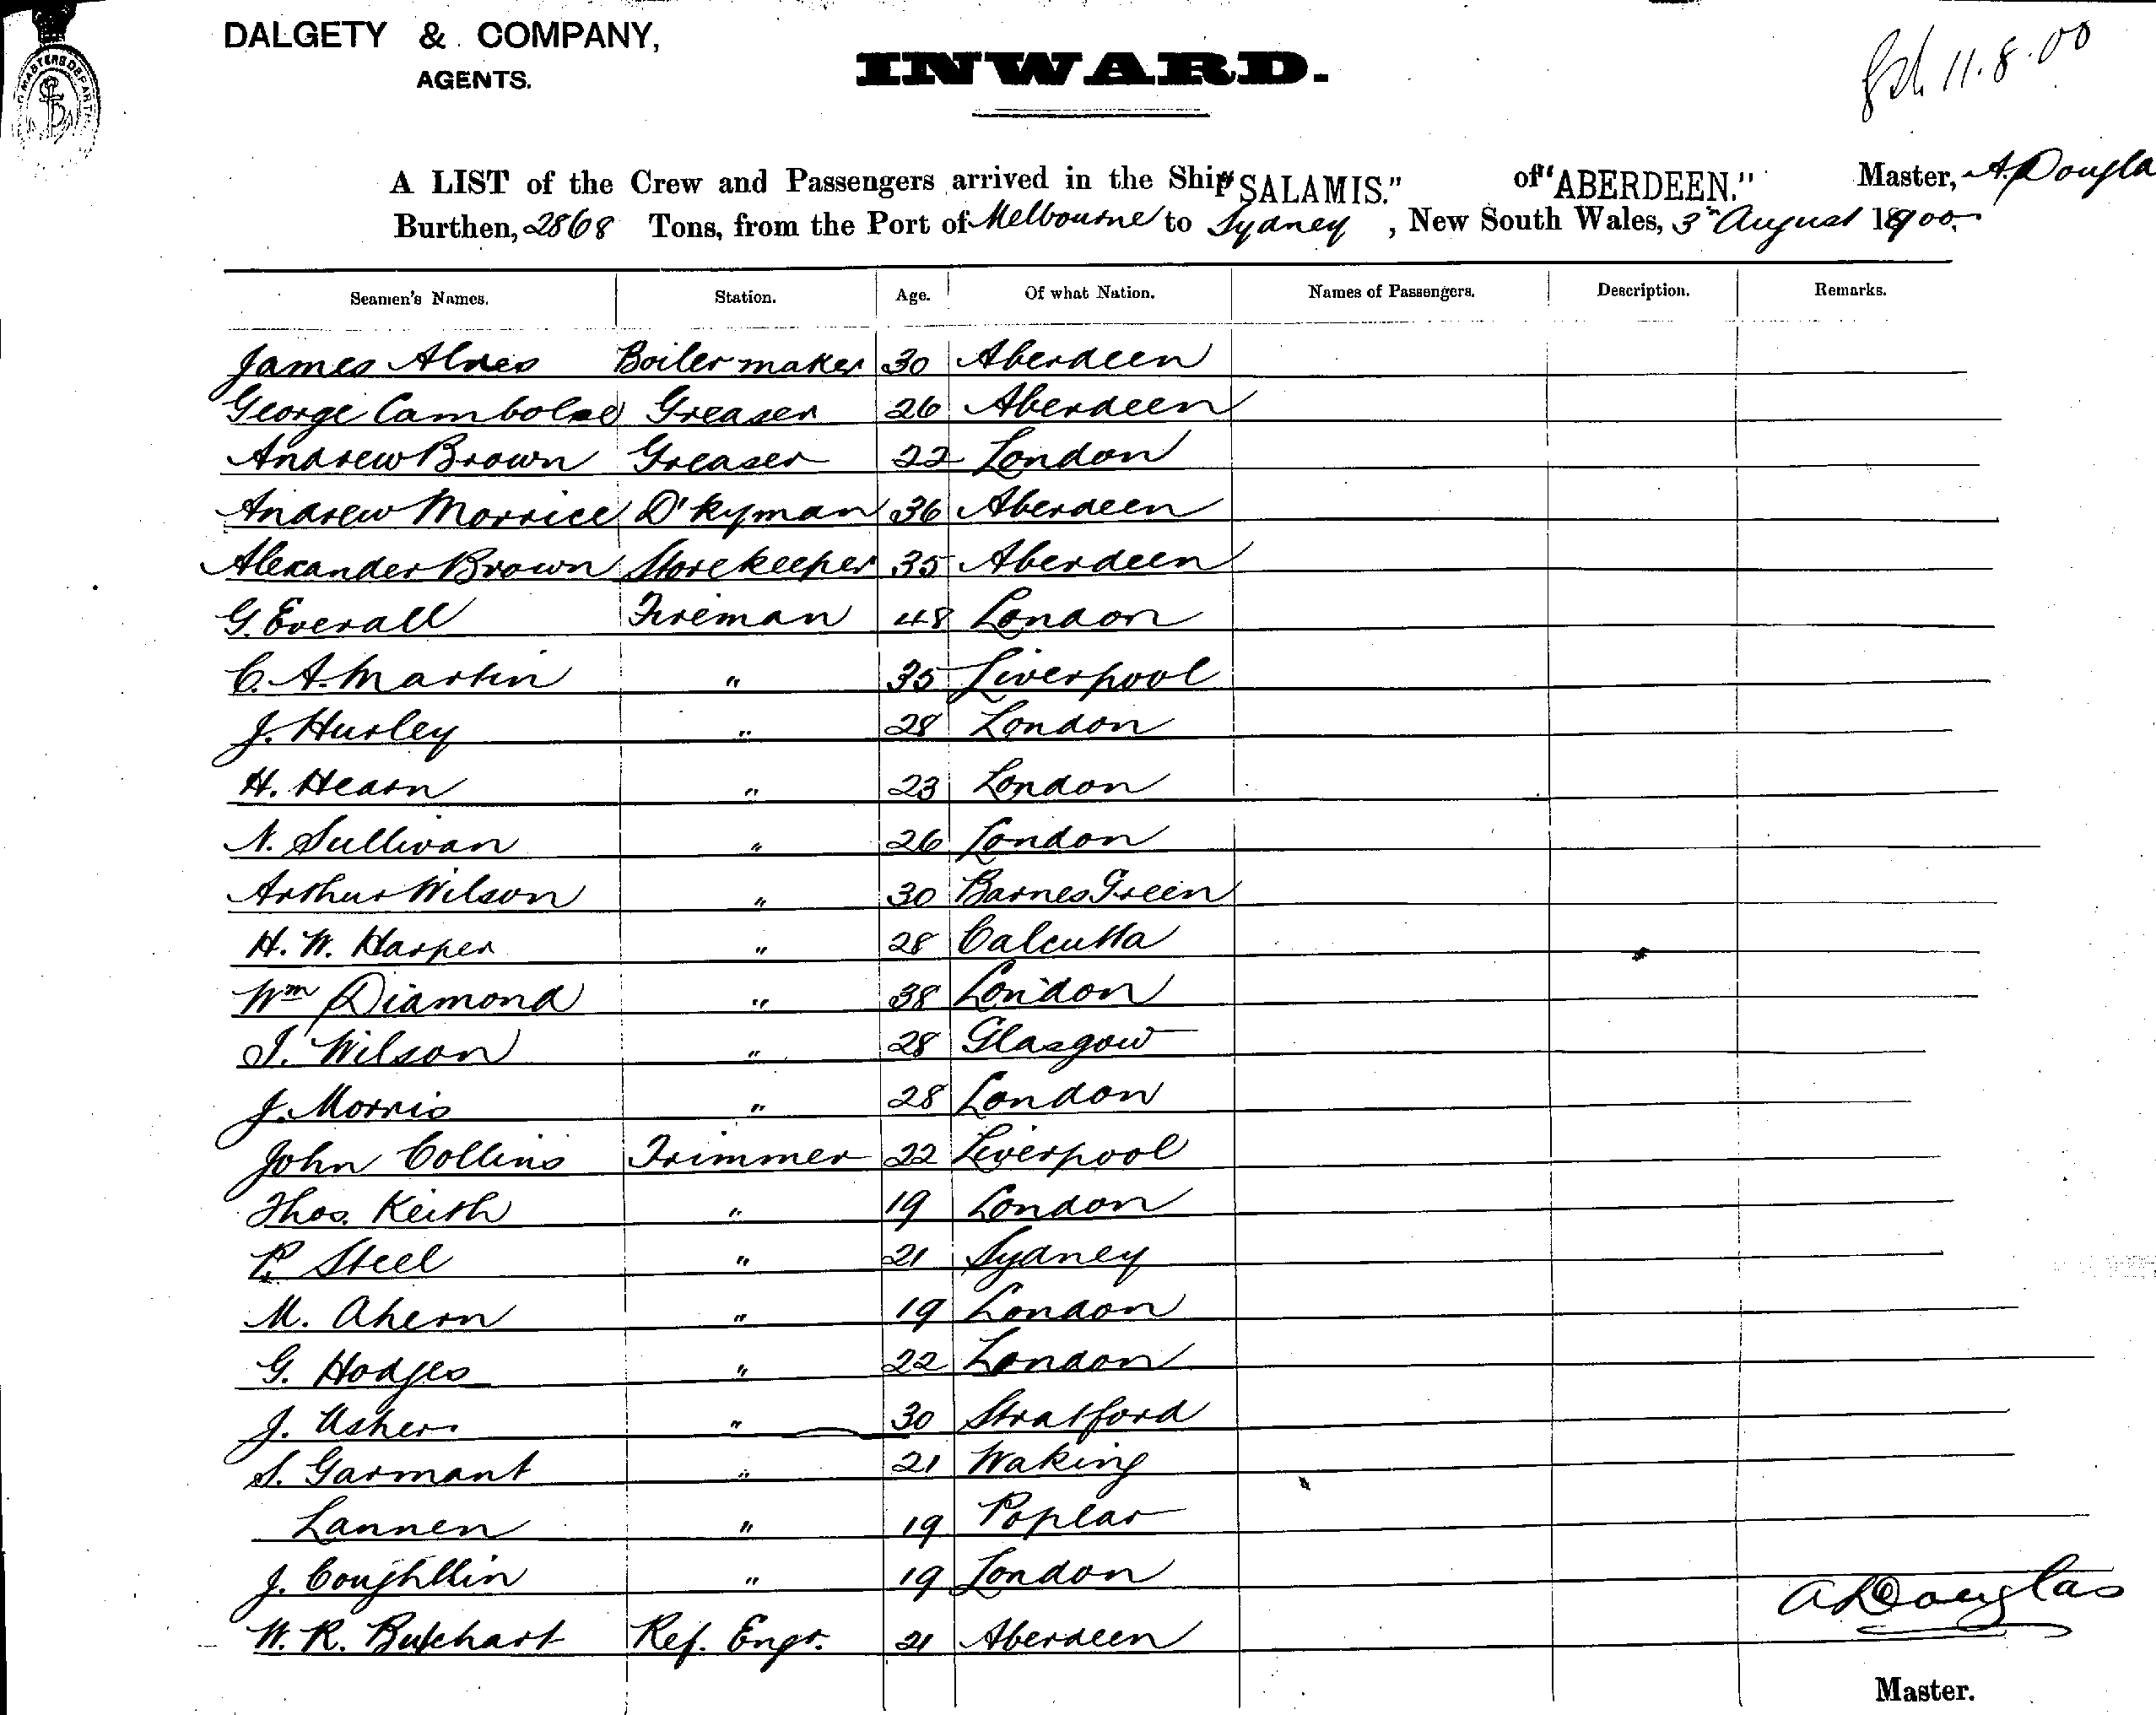 DALGETY & COMPANY,
AGENTS.
INWARD.
11.8.00
A LIST of the Crew and Passengers arrived in the Ship "SALAMIS." of "ABERDEEN." Master, A. Dougla
Burthen, 2868 Tons, from the Port of Melbourne to Sydney, New South Wales, 3rd August 1900.
Seamen's Names. Station. Age. Of what Nation. Names of Passengers. Description. Remarks.
James Boiler maker 30 Aberdeen
George Greaser 26 Aberdeen
Andrew Brown Greaser 22 London
Andrew Morrice D'kyman 36 Aberdeen
Alexander Brown Storekeeper 35 Aberdeen
G. Everall Fireman 48 London
C. A. Martin " 35 Liverpool
J. Hurley " 28 London
H. Hearn " 23 London
N. Sullivan " 26 London
Arthur Wilson " 30 Barnes Green
H. W. Harper " 28 Calcutta
Wm Diamond " 38 London
J. Wilson " 28 Glasgow
J. Morris " 28 London
John Collins Trimmer 22 Liverpool
Thos. Keith " 19 London
P. Steel " 21 Sydney
M. Ahern " 19 London
G. Hodges " 22 London
J. Usher " 30 Stratford
S. Garmant " 21 Waking
Lannen " 19 Poplar
J. Coughllin " 19 London
W. R. Ref. Engr. 21 Aberdeen
A Douglas
Master.